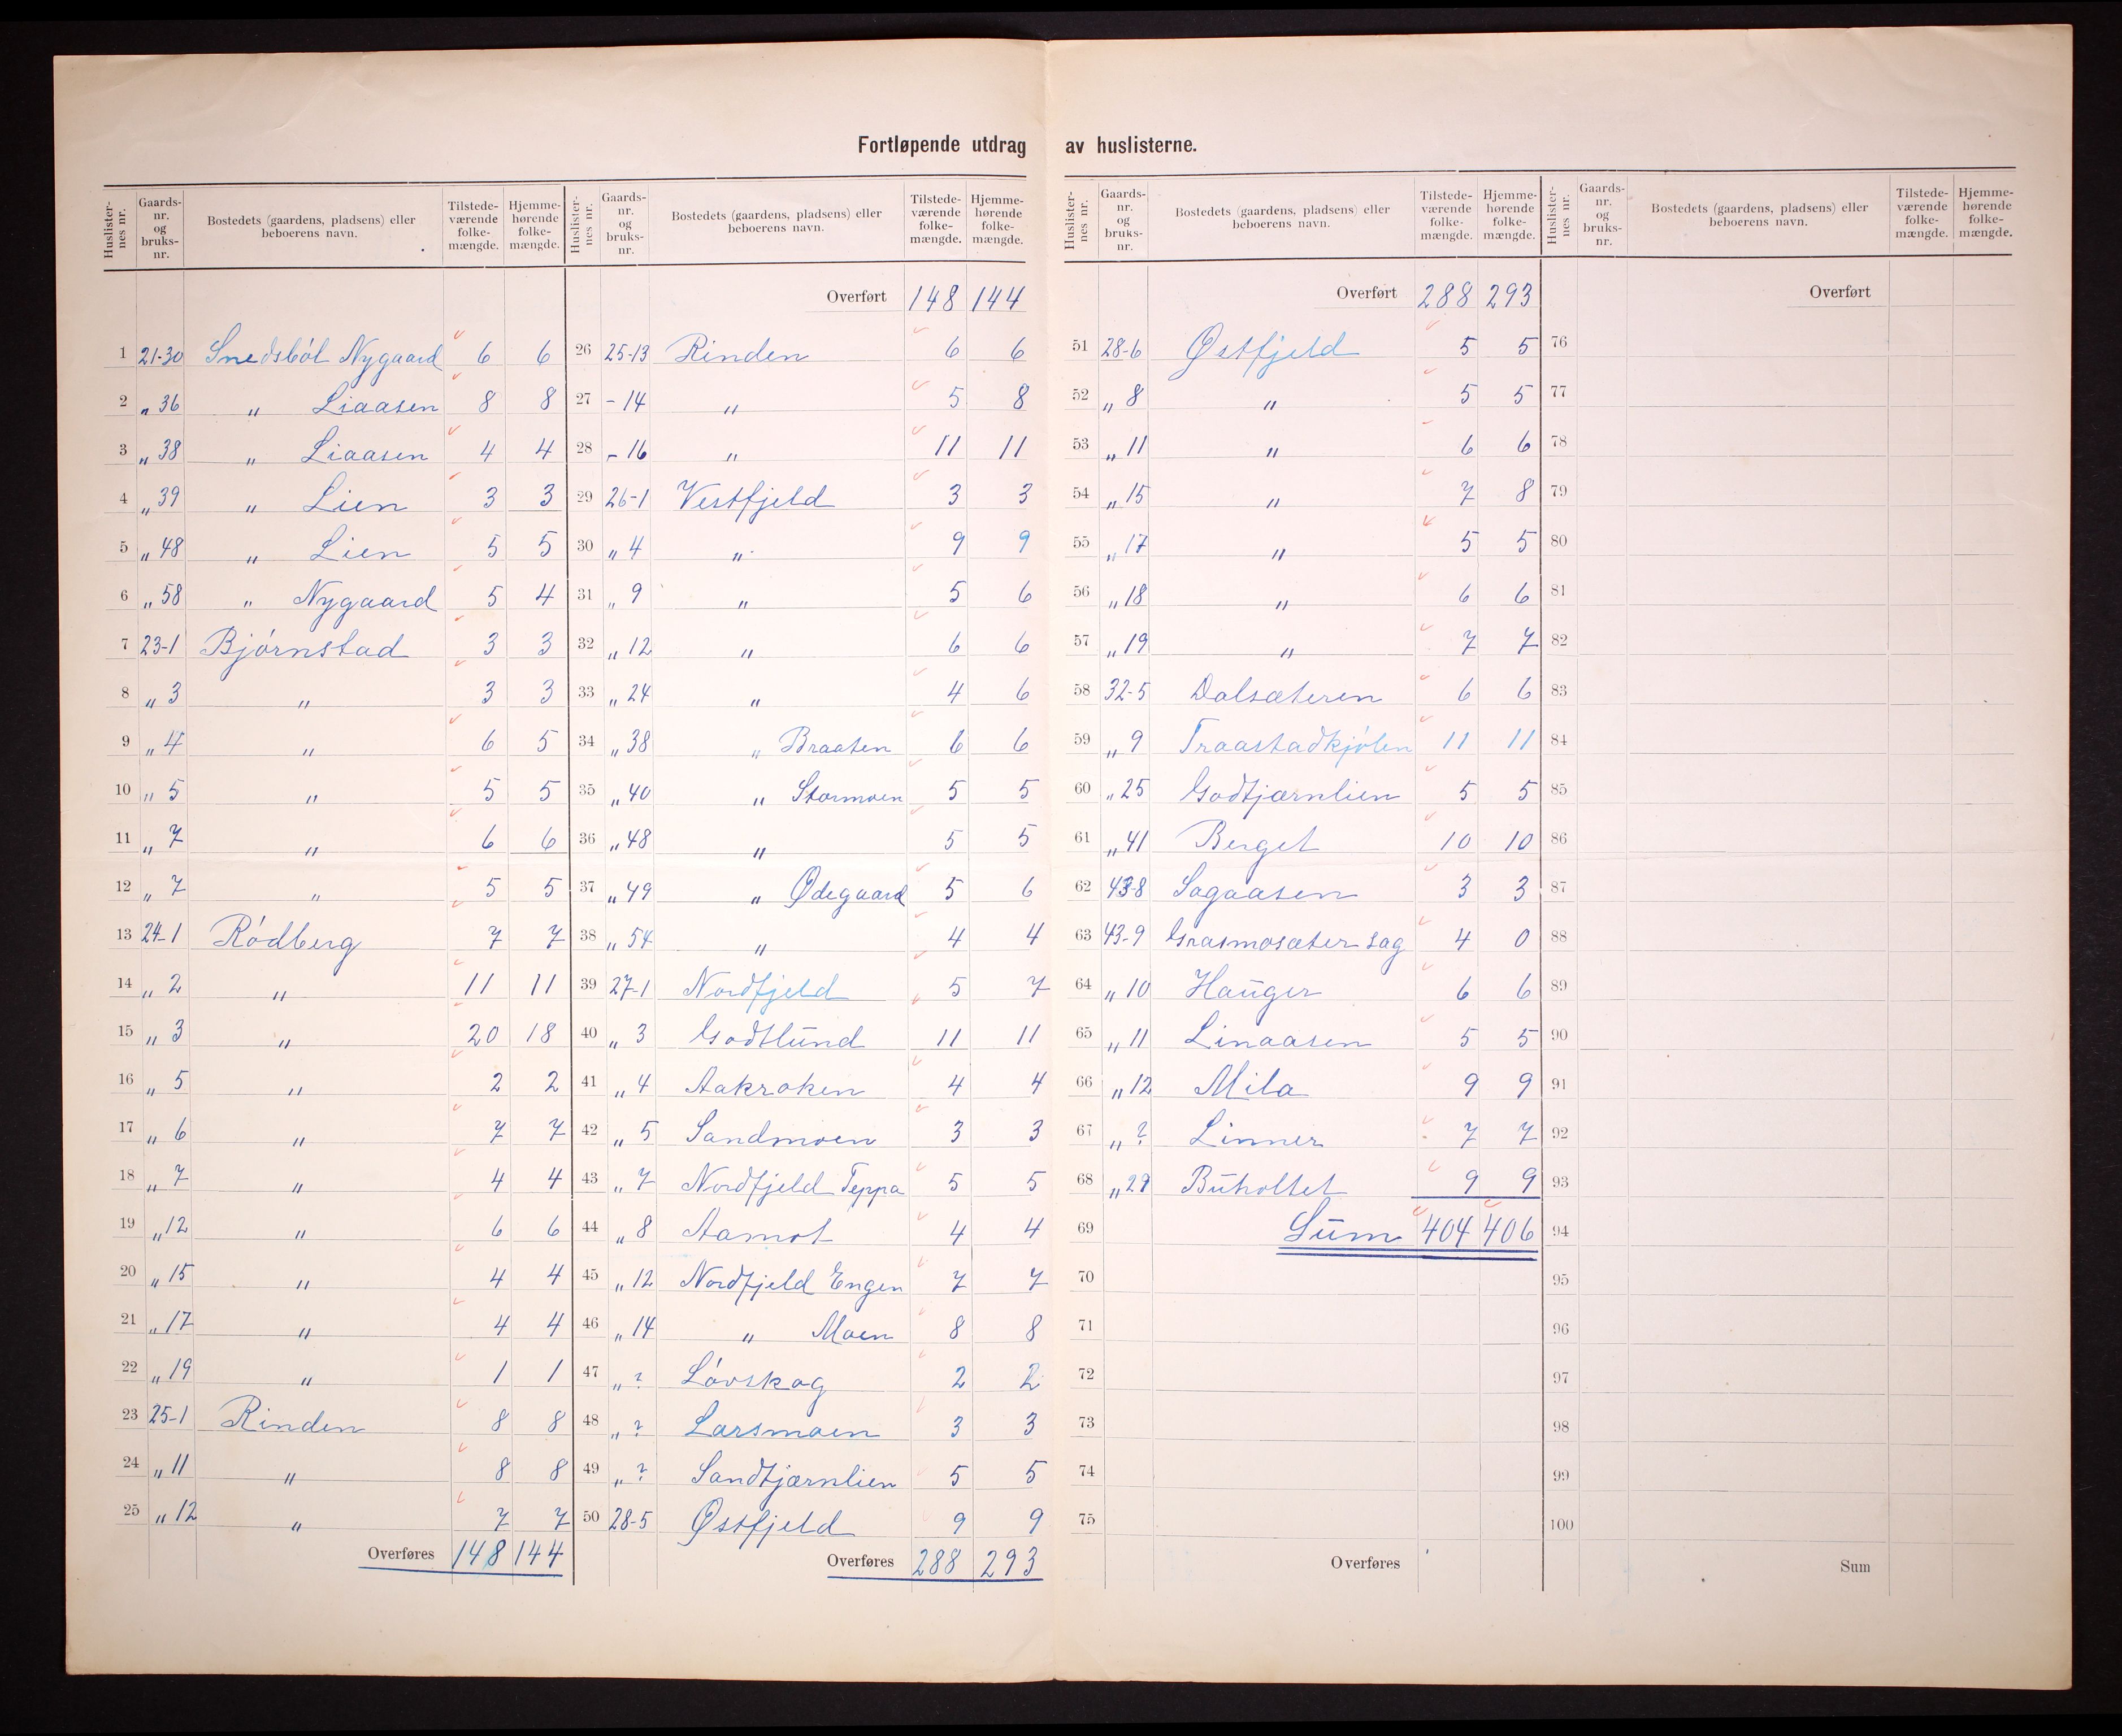 Fortløpende utdrag av huslisterne.
Huslisternes nr. Gaards-nr. og bruks-nr. Bostedets (gaardens, pladsens) eller beboerens navn. Tilstedeværende folkemængde. Hjemmehørende folkemængde.
1 21-30 Snedsböl Nygaard 6 6
2 „ 36 „ Liaasen 8 8
3 „ 38 „ Liaasen 4 4
4 „ 39 „ Lien 3 3
5 „ 48 „ Lien 5 5
6 „ 58 „ Nygaard 5 4
7 23-1 Bjórnstad 3 3
8 „ 3 „ 3 3
9 „ 4 „ 6 5
10 „ 5 „ 5 5
11 „ 7 „ 6 6
12 „ 7 „ 5 5
13 24-1 Ródberg 7 7
14 „ 2 „ 11 11
15 „ 3 „ 20 18
16 „ 5 „ 2 2
17 „ 6 „ 7 7
18 „ 7 „ 4 4
19 „ 12 „ 6 6
20 „ 15 „ 4 4
21 „ 17 „ 4 4
22 „ 19 „ 1 1
23 25-1 Rinden 8 8
24 „ 11 „ 8 8
25 „ 12 „ 7 7
Overføres 148 144
Huslisternes nr. Gaards-nr. og bruks-nr. Bostedets (gaardens, pladsens) eller beboerens navn. Tilstedeværende folkemængde. Hjemmehørende folkemængde.
Overført 148 144
26 25-13 Rinden 6 6
27 - 14 „ 5 8
28 - 16 „ 11 11
29 26-1 Vestfjeld 3 3
30 „ 4 „ 9 9
31 „ 9 „ 5 6
32 „ 12 „ 6 6
33 „ 24 „ 4 6
34 „ 38 „ Braaten 6 6
35 „ 40 „ Stormoen 5 5
36 „ 48 „ 5 5
37 „ 49 „ Ødegaard 5 6
38 „ 54 „ 4 4
39 27-1 Nordfjeld 5 7
40 „ 3 Godtlund 11 11
41 „ 4 Aakroken 4 4
42 „ 5 Sandmoen 3 3
43 „ 7 Nordfjeld Teppa 5 5
44 „ 8 Aamot 4 4
45 „ 12 Nordfjeld Engen 7 7
46 „ 14 „ Moen 8 8
47 „ ? Lóvskog 2 2
48 „ ? Larsmoen 3 3
49 „ ? Sandtjærnlien 5 5
50 28-5 Østfjeld 9 9
Overføres 288 293
Huslisternes nr. Gaards-nr. og bruks-nr. Bostedets (gaardens, pladsens) eller beboerens navn. Tilstedeværende folkemængde. Hjemmehørende folkemængde.
Overført 288 293
51 28-6 Østfjeld 5 5
52 „ 8 „ 5 5
53 „ 11 „ 6 6
54 „ 15 „ 7 8
55 „ 17 „ 5 5
56 „ 18 „ 6 6
57 „ 19 „ 7 7
58 32-5 Dalsæteren 6 6
59 „ 9 Traastadkjólen 11 11
60 „ 25 Godtjærnlien 5 5
61 „ 41 Berget 10 10
62 43-8 Sagaasen 3 3
63 43-9 Grasmosæter sag 4 0
64 „ 10 Hauger 6 6
65 „ 11 Linaasen 5 5
66 „ 12 Mila 9 9
67 „ ? Linner 7 7
68 „ 29 Buholtet 9 9
69 Sum 404 406
70
71
72
73
74
75
Overføres
Huslisternes nr. Gaards-nr. og bruks-nr. Bostedets (gaardens, pladsens) eller beboerens navn. Tilstedeværende folkemængde. Hjemmehørende folkemængde.
Overført
76
77
78
79
80
81
82
83
84
85
86
87
88
89
90
91
92
93
94
95
96
97
98
99
100
Sum